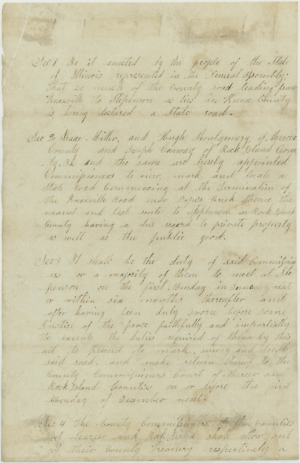 Sec 1 Be it enacted by the people of the State
of Illinois represented in the General Assembly
That so much of the County road leading from
Knoxville to Stephenson as lies in Knox County
is being declared a State road.
Sec 2 Isaac Miller, and Hugh Montgomery of Mercer
County and Joseph Conway of Rock Island County
and the same are hereby appointed
Commissioners to view, mark and locate a
State road Commencing at the termination of
the Knoxville road thence the
nearest and best route to Stephenson in Rock Island
County having a due regard to private property
as well as the public good.
Sec 3 It shall be the duty of said Commission
ers or a majority of them to meet at
on the first Monday in January next
or within six months thereafter and
after having been duly sworn before some
Justice of the peace faithfully and impartially
to execute the duties required of them by this
act to proceed to mark, and
said road, and make return thereof to the
County Commissioners Court of Mercer and
Rock Island Counties on or before the first
Monday of December next
Sec 4 The County Commissioners of the Counties
of Mercer and Rock Island shall allow out
of their County Treasury respectively a